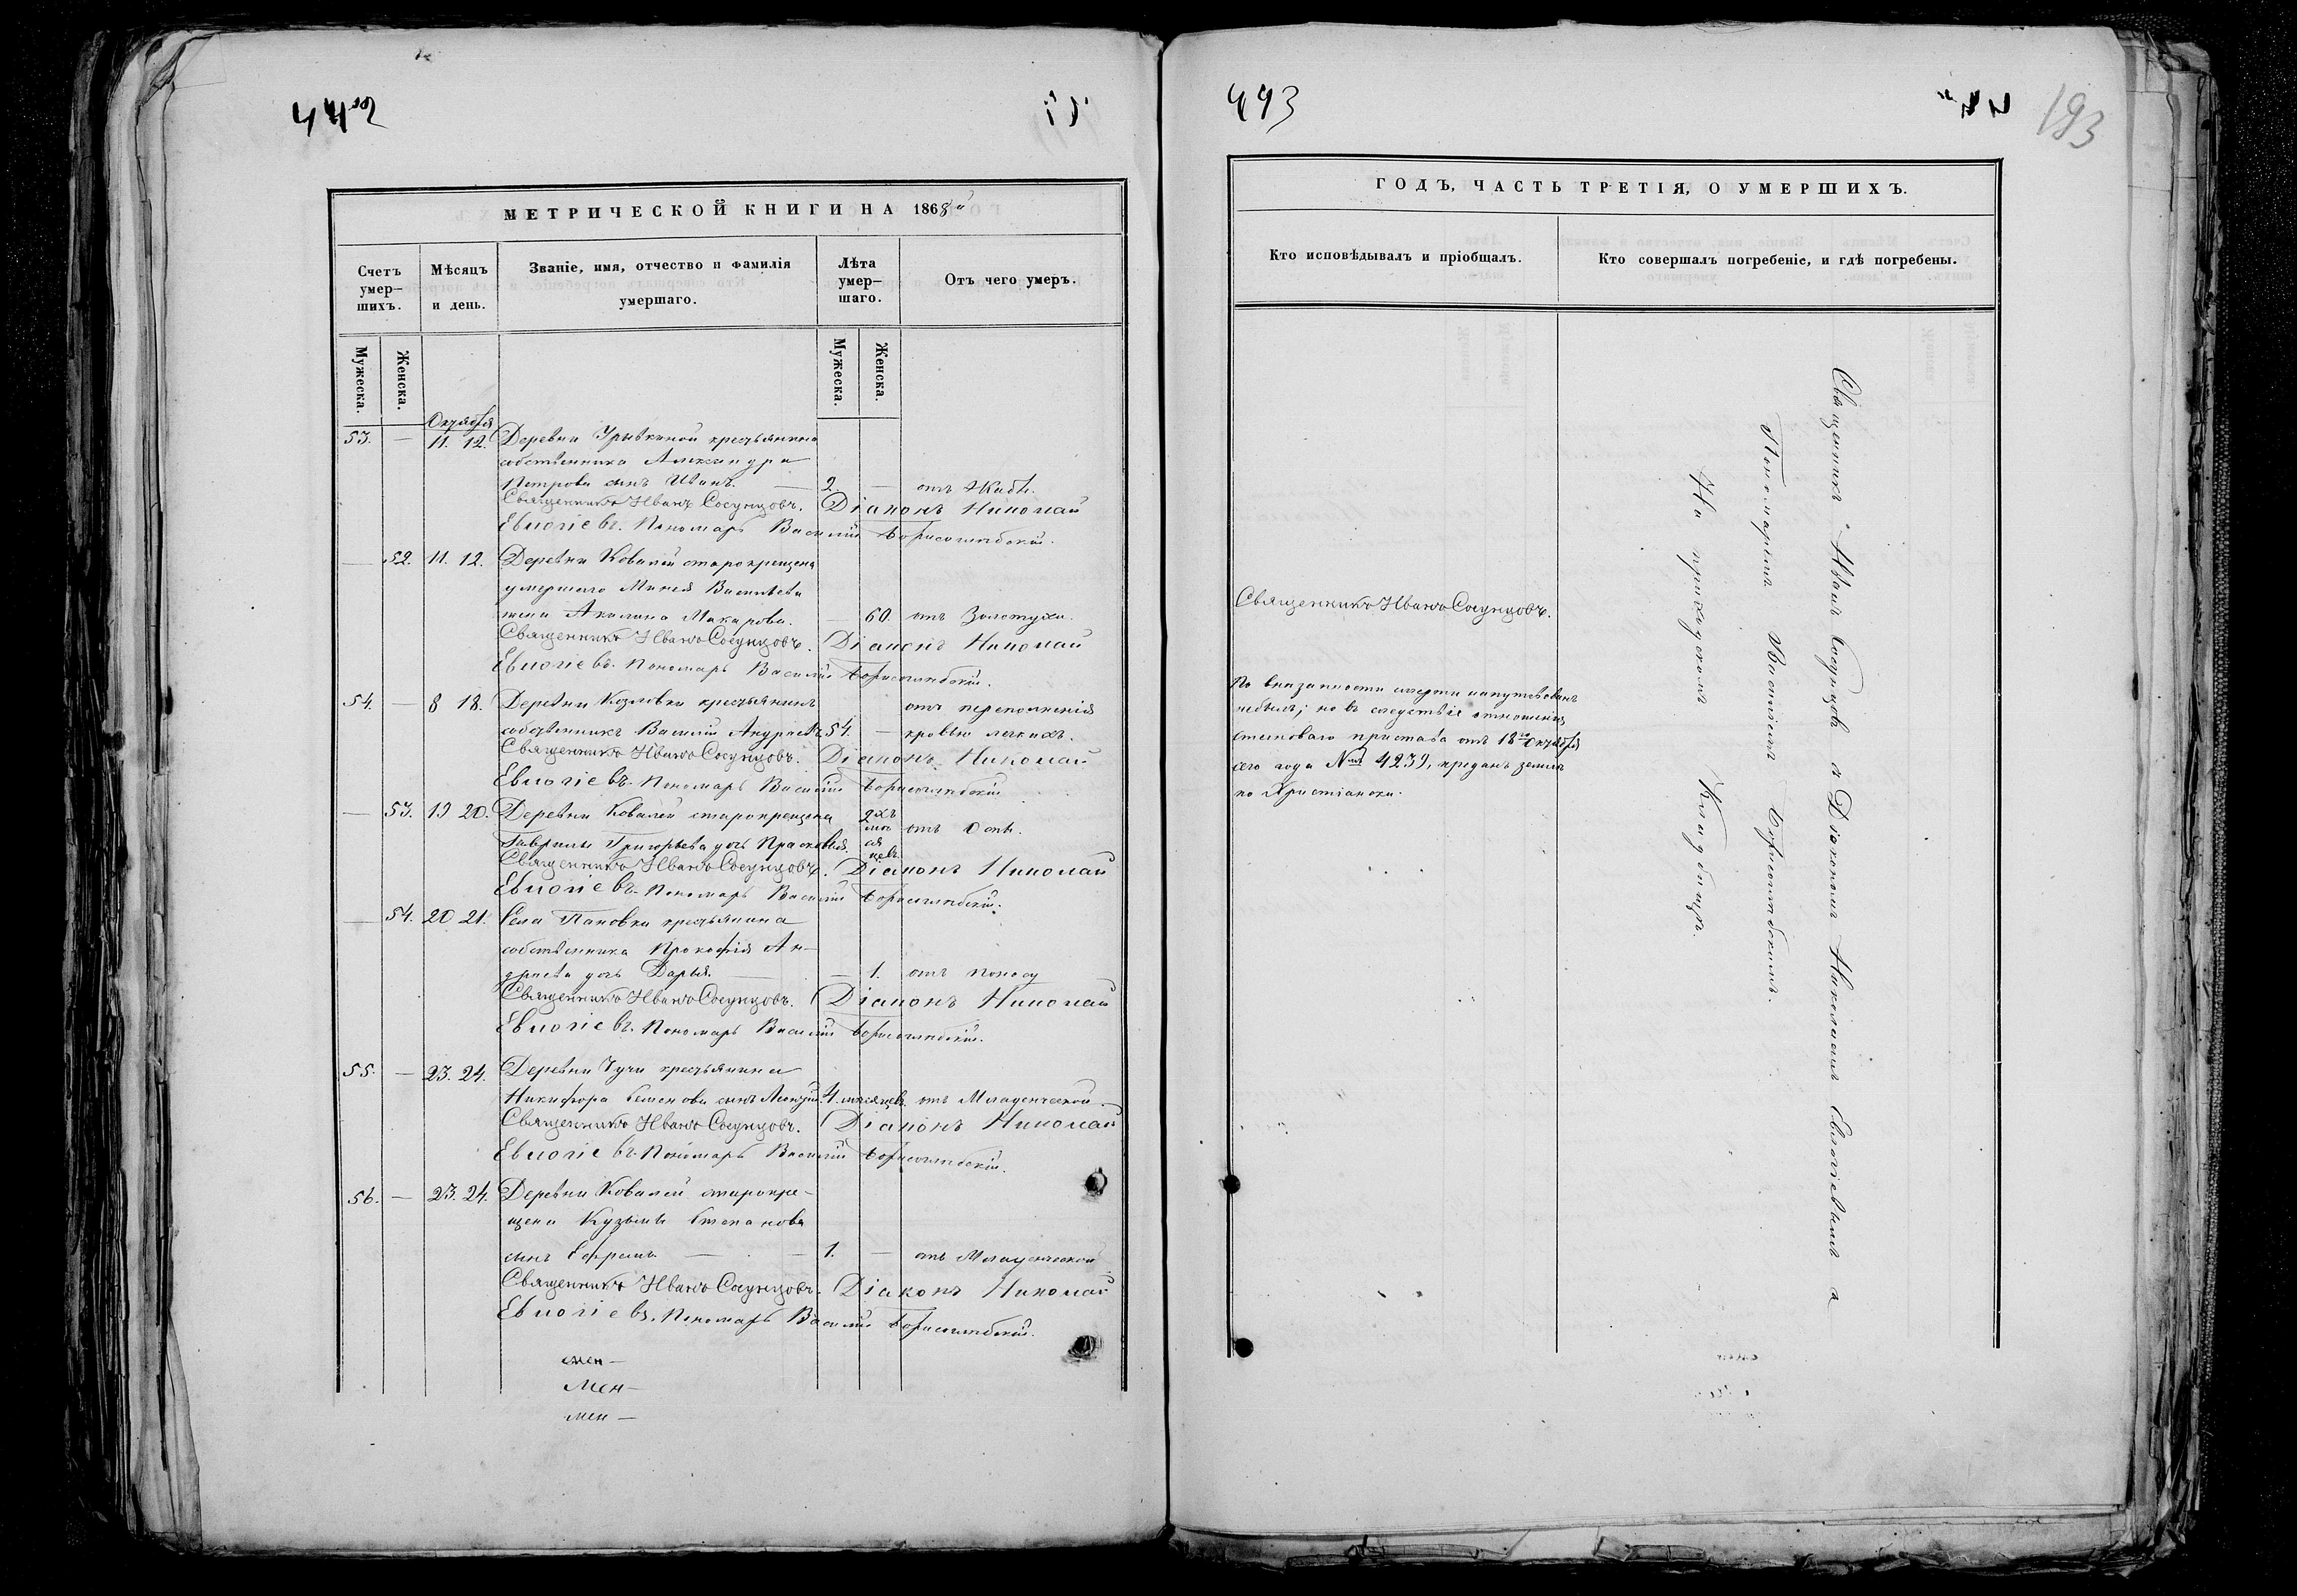 493
193
МЕТРИЧЕСКОЙ КНИГИ НА 1868й
Счетъ умер-шихъ.
Мѣсяцъ и день.
Званіе, имя, отчество и фамилія умершаго.
Лѣта умер-шаго.
Отъ чего умеръ.
Мужеска.
Женска.
Мужеска.
Женска.
Октября
53. — 11. 12. Деревни крестьянина
собственника Александра
Петрова сынъ Иванъ. — 2. — отъ Жабы.
Священникъ Иванъ Сосунцовъ. Діаконъ Николай
Евлогіевъ. Пономарь Василій Борисоглѣбскій.
— 52. 11. 12. Деревни Ковалей старокрещена
умершаго Минея Васильева
жена Акилина Макарова. — 60. отъ Золотухи.
Священникъ Иванъ Сосунцовъ. Діаконъ Николай
Евлогіевъ. Пономарь Василій Борисоглѣбскій.
54. — 8 18. Деревни Козловки крестьянинъ отъ переполненія
собственникъ Василій Андреевъ 54. — кровью легкихъ.
Священникъ Иванъ Сосунцовъ. Діаконъ Николай
Евлогіевъ. Пономарь Василій Борисоглѣбскій
— 53. 19 20. Деревни Ковалей старокрещена 2хъ мѣсяцевъ отъ Оспы.
Гаврилы Григорьева дочь Прасковья.
Священникъ Иванъ Сосунцовъ. Діаконъ Николай
Евлогіевъ. Пономарь Василій Борисоглѣбскій.
— 54. 20 21. Села Пановки крестьянина
собственника Прокофія Ан-
дреева дочь Дарья. — — 1. отъ поносу
Священникъ Иванъ Сосунцовъ. Діаконъ Николай
Евлогіевъ. Пономарь Василій Борисоглѣбскій.
55. — 23. 24. Деревни Чучи крестьянина
Никифора Семенова сынъ 4. мѣсяцевъ. отъ Младенческой.
Священникъ Иванъ Сосунцовъ. Діаконъ Николай
Евлогіевъ. Пономарь Василій Борисоглѣбскій.
56. — 23. 24. Деревни Ковалей старокре-
щена Кузьмы Степанова
сынъ Ефремъ — — 1. — отъ Младенческой
Священникъ Иванъ Сосунцовъ. Діаконъ Николай
Евлогіевъ. Пономарь Василій Борисоглѣбскій.
мен—
мен—
мен—
ГОДЪ, ЧАСТЬ ТРЕТІЯ, О УМЕРШИХЪ.
Кто исповѣдывалъ и пріобщалъ.
Кто совершалъ погребеніе, и гдѣ погребены.
Священникъ Иванъ Сосунцовъ.
По внезапности смерти напутствованъ
небылъ; но въ слѣдствіе отношенія
становаго пристава отъ 18го Октября
сего года № 4239, преданъ землѣ
по Христіански.
Священникъ Иванъ Сосунцовъ съ Діакономъ Николаемъ Евлогіевымъ и
Пономаремъ Василіемъ Борисоглѣбскимъ.
На приходскомъ Кладбищѣ.